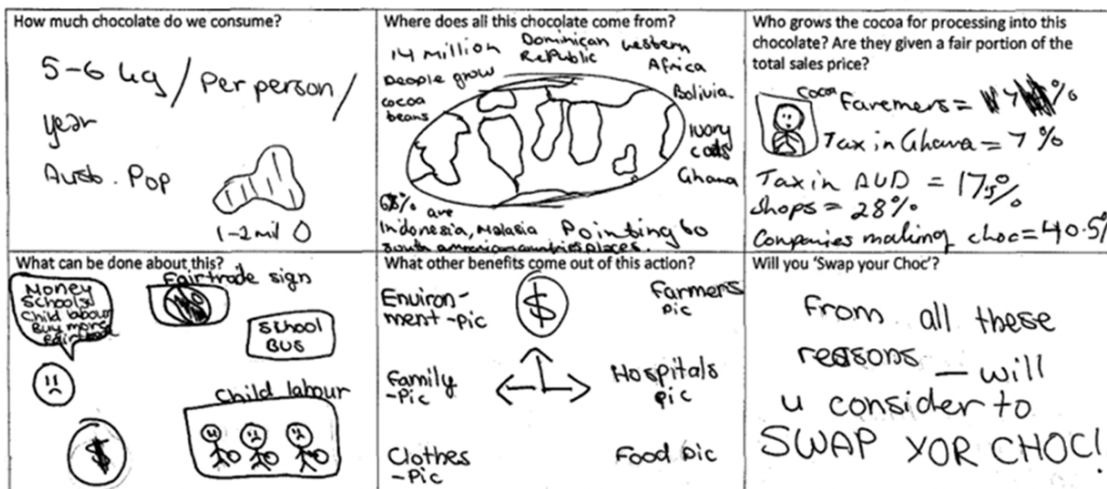 How much chocolate do we consume?
5-6 kg / Per person /
year
Aust. Pop
1-2 mil
Where does all this chocolate come from?
14 million
People grow
cocoa
beans
Dominican
Republic
Western
Africa
Bolivia
Ivory
Ghana
68% are
Indonesia, Malasia Pointing to
places.
Who grows the cocoa for processing into this
chocolate? Are they given a fair portion of the
total sales price?
Cocoa
Faremers = 7 %
Tax in Ghana = 7 %
Tax in AUD = 17.5%
Shops = 28%
Companies making choc = 40.5%
What can be done about this?
Money
Schools
Child labour
Buy more
Fairtrade
Fairtrade sign
School
BUS
Child labour
$
What other benefits come out of this action?
Environ-
ment -Pic
$
Farmers
pic
Family
-Pic
Hospitals
pic
Clothes
-Pic
Food pic
Will you 'Swap your Choc'?
From all these
reasons – will
u consider to
SWAP YOR CHOC!